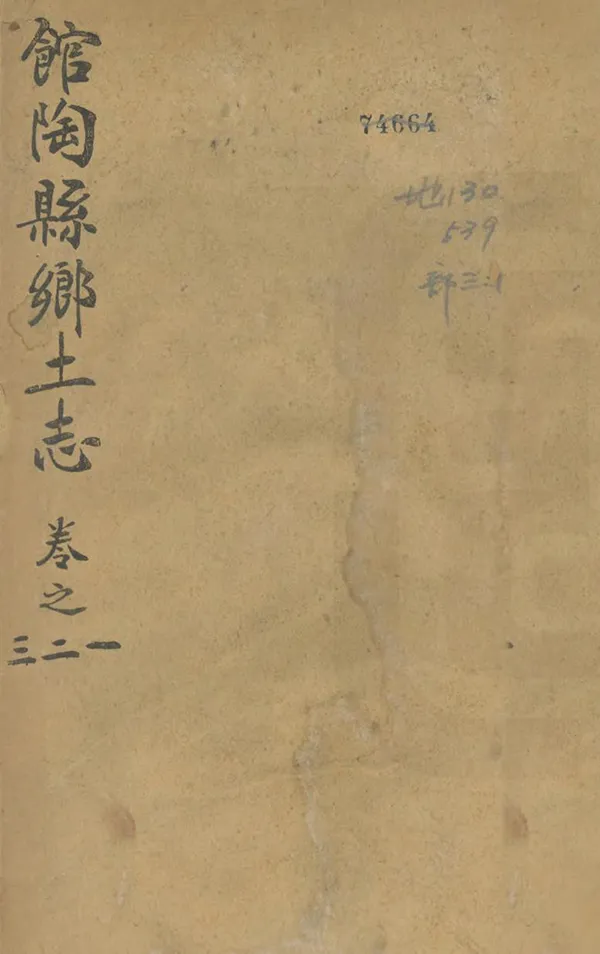 館陶縣鄉土志 卷之
一二三
74664
地130
539
部三:1